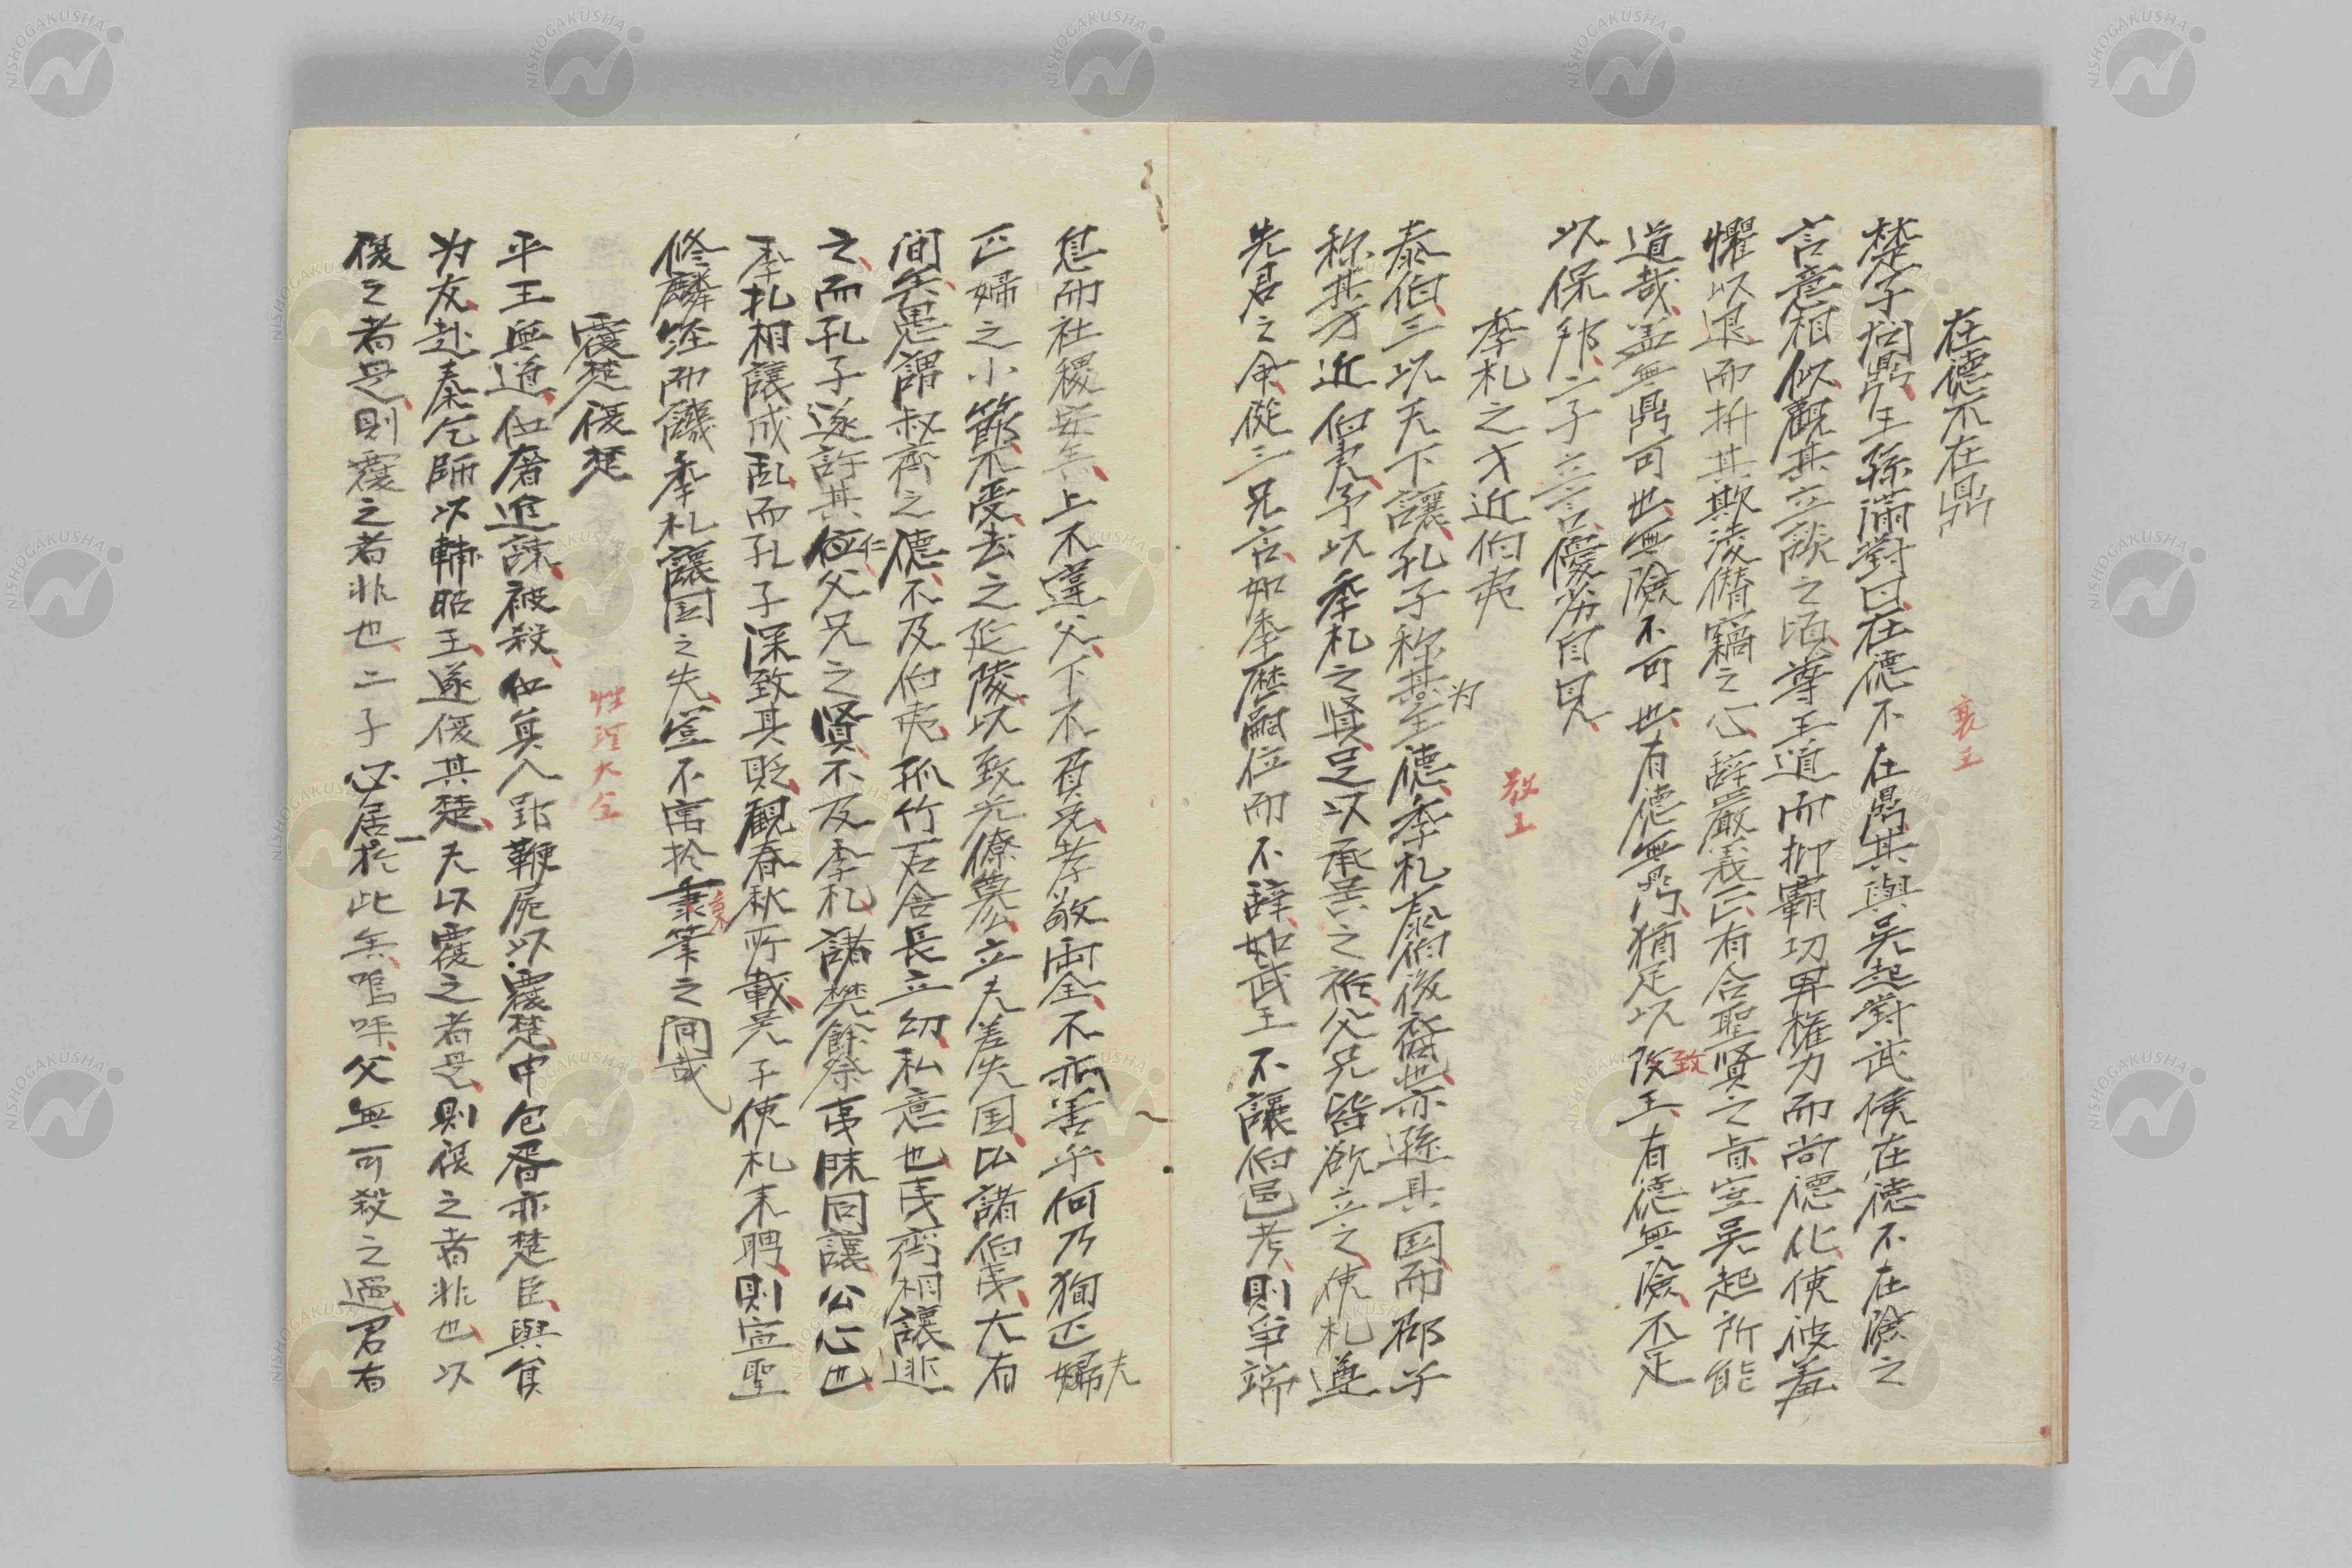 在德不在鼎
襄王
楚子問鼎王孫滿對曰在德不在鼎其與吳起對武侯在德不在險之
言意相似觀其立談之頃尊王道而抑霸功卑權力而尚德化使彼羞
懼以退而折其欺凌僭竊之心辞嚴義正有合聖賢之旨豈吳起所能
道哉盖無鼎可也無險不可也有德無鼎猶足以致王有德無險不足
致
以保邦二子立言優劣自見
季札之才近伯夷
敬王
泰伯三以天下讓孔子称其至德季札泰伯後裔也亦遜其国而鄰乎
为
称其才近伯夷予以季札之賢足以承呉之祚父兄皆欲立之使札遵
先君之命従三兄言如季歷嗣位而不辞如武王不讓伯邑考則争端
息而社稷安矣上不違父下不負兄孝敬両全不亦善乎何乃狥匹婦
夫
匹婦之小節不受去之延陵以致光僚簒立夫差失国比諸伯夷大有
間矣愚謂叔齊之德不及伯夷孤竹君舍長立幼私意也夷齊相讓逃
之而孔子遂許其仁父兄之賢不及季札諸樊餘祭夷昧同讓公心也
仁
季札相讓成乱而孔子深致其貶觀春秋所載吴子使札来聘則宣聖
修麟經而譏季札讓国之失豈不寓於秉筆之間哉
秉
覆楚復楚
性理大全
平王無道伍奢進諫被殺伍員入郢鞭屍以覆楚申包胥亦楚臣與員
为友赴秦乞師以輔昭王遂復其楚夫以覆之者是則復之者非也以
復之者是則覆之者非也二子必居一於此矣嗚呼父無可殺之過君有